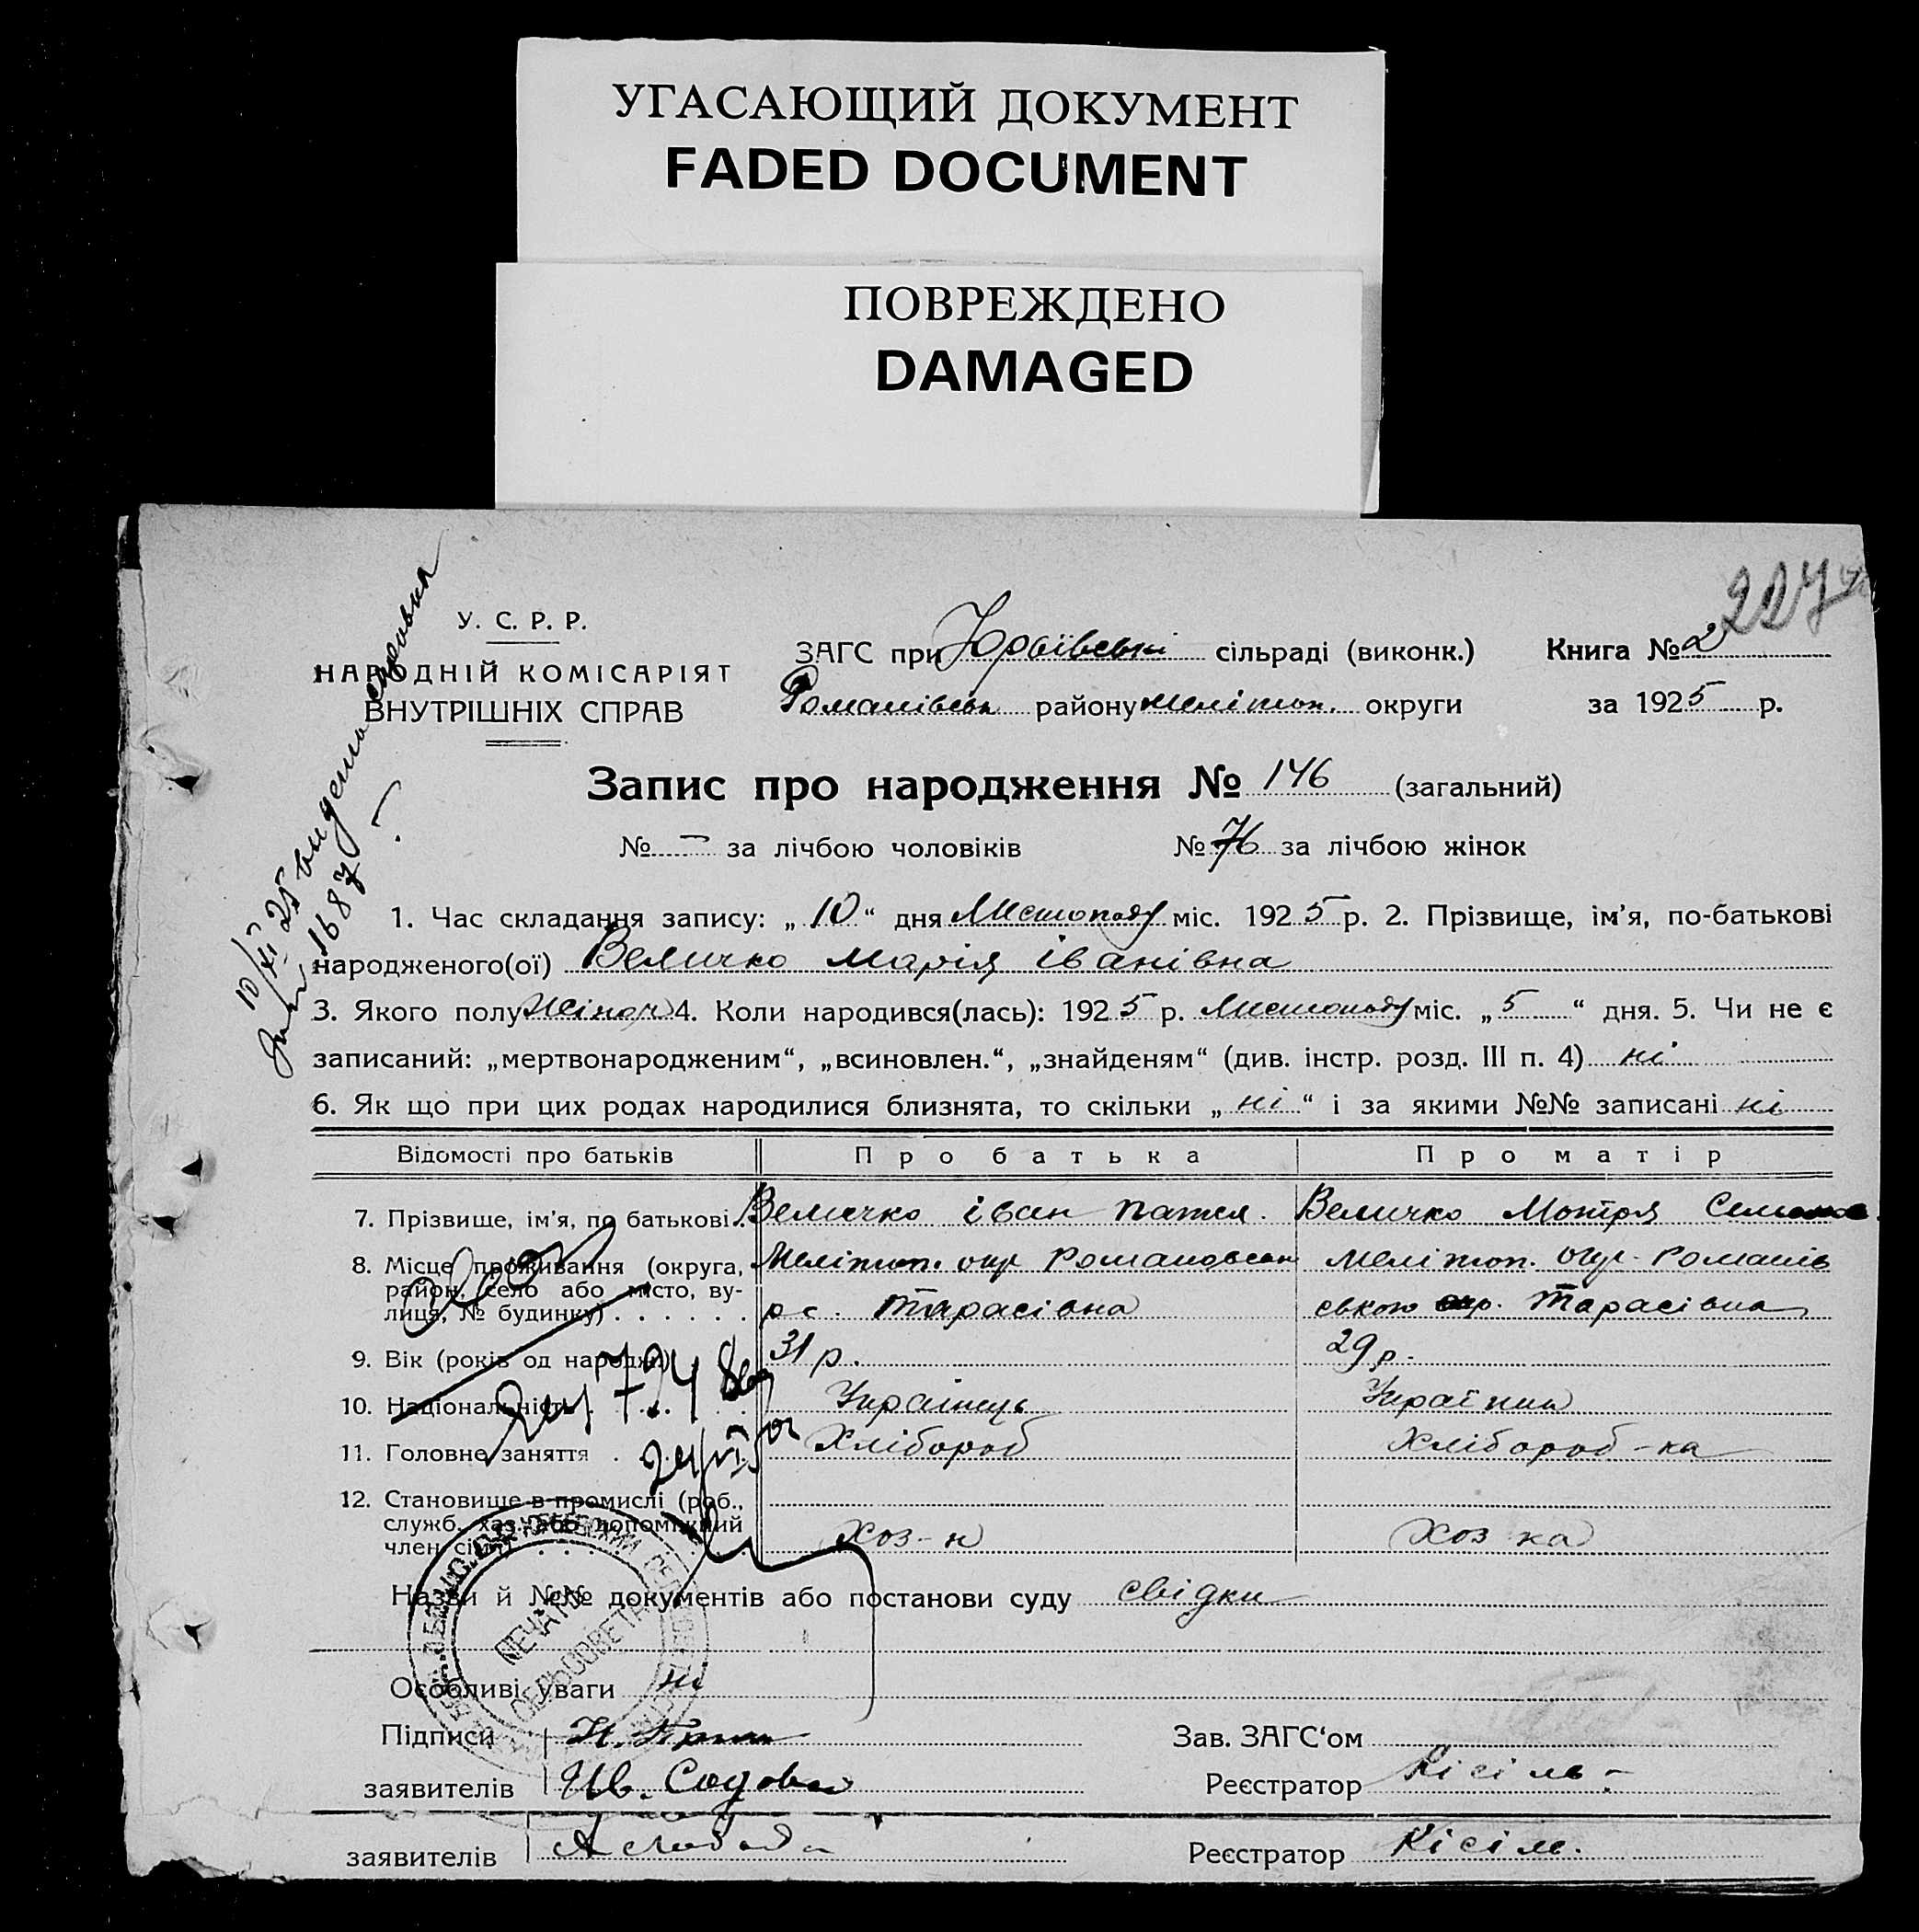 УГАСАЮЩИЙ ДОКУМЕНТ
FADED DOCUMENT
ПОВРЕЖДЕНО
DAMAGED
227
У. С. Р. Р.
НАРОДНІЙ КОМІСАРІЯТ
ВНУТРІШНІХ СПРАВ
ЗАГС при Юрьївські сільраді (виконк.) Книга № 2
Романівськ району мелітоп. округи за 1925 р.
Запис про народження № 146 (загальний)
№ — за лічбою чоловіків № 76 за лічбою жінок
1. Час складання запису: „10“ дня Листопаду міс. 1925 р. 2. Прізвище, ім'я, по-батькові
народженого(ої) Величко Марія Іванівна
3. Якого полу жіноч 4. Коли народився(лась): 1925 р. Листопаду міс. „5“ дня. 5. Чи не є
записаний: „мертвонародженим“, „всиновлен.“, „знайденям“ (див. інстр. розд. III п. 4) ні
6. Як що при цих родах народилися близнята, то скільки „ні“ і за якими №№ записані ні
Відомості про батьків Про батька Про матір
7. Прізвище, ім'я, по батькові. Величко Іван Величко Мотря
8. Місце проживання (округа, Мелітоп. окр Романовськ Мелітоп. окр. Романів
район, село або місто, ву-
лиця, № будинку) . . . . . . рс. Тарасівна ською Тарасівна
9. Вік (років од народж.) 31 р. 29 р.
10. Національність Українець Українка
11. Головне заняття . Хлібороб Хлібороб-ка
12. Становище в промислі (роб.,
служб., хаз. або допоміжний
член сім'ї) хоз-н хоз ка
Назви й №№ документів або постанови суду свідки
Особливі уваги ні
ПЕЧАТЬ
СЕЛЬСОВЕТА
Підписи Зав. ЗАГС‘ом
заявителів Ив. Реєстратор Кісіль
заявителів Реєстратор Кісіль
10/XI 25
1687